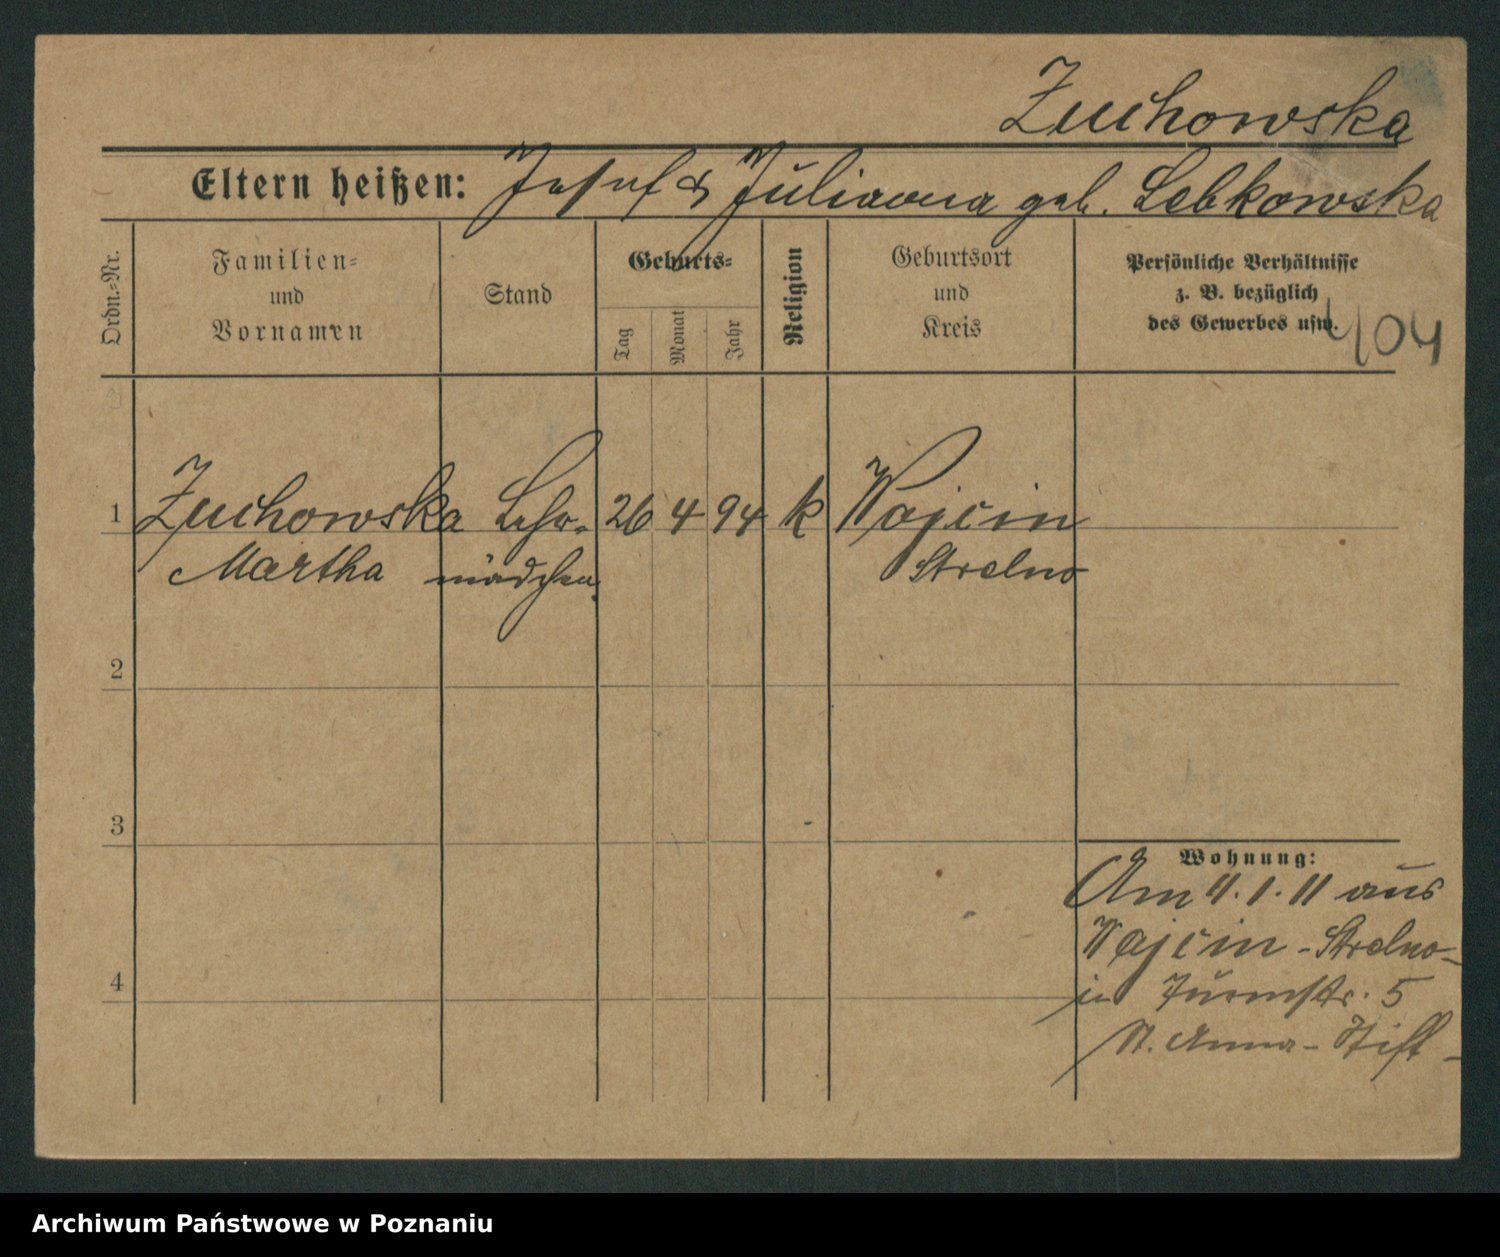 Zuchowska
Eltern heißen: Josef & Julianna geb. Lebkowska
Ordn.=Nr.
Familien=
und
Vornamen
Stand
Geburts=
Tag
Monat
Jahr
Religion
Geburtsort
und
Kreis
Persönliche Verhältnisse
z. B. bezüglich
des Gewerbes usw.
404
1 Zuchowska Lehr- 26 4 94 k Wojcin
Martha mädchen Strelno
2
3
Wohnung:
Am 4.1.11 aus
Wojcin - Strelno -
in Turmstr. 5
4
St. Anna - Stift -
Archiwum Państwowe w Poznaniu